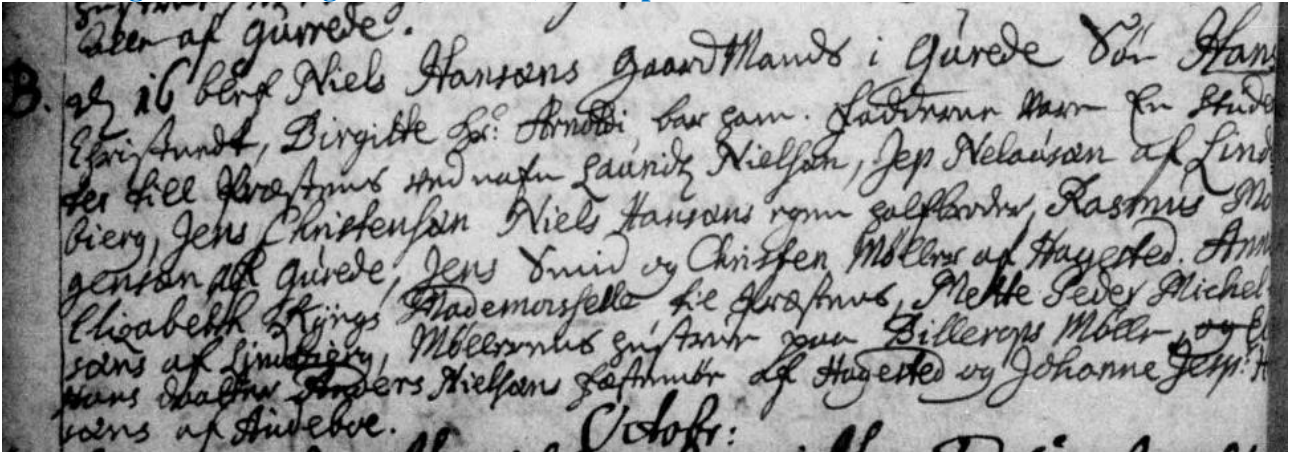 af Gurrede.
B. 16 blef Niels Hansøns Gaard Mands i Gurede Søn Hans
Christnedt, Birgitte Hr: Arnoldi bar ham. Fadderne vare En Studen
ter till Præstens ved nafn Lauridz Nielsøn, Jep Nelausøn af Lind
bierg, Jens Christensøn Niels Hansøns egen halfbroder, Rasmus Mo
gensøn af Gurede, Jens Smid og Christen Møller af Hagested. Anna
Elisabeth Mademoiselle til Præstens, Mette Peder Michel
søns af Lindbierg, Møllerens Hustrue paa Billerops Mølle,
hans daatter Anders Nielsøns fæstemøe af Hagested og Johanne Jesp:
søns af Audeboe.
Octobr: